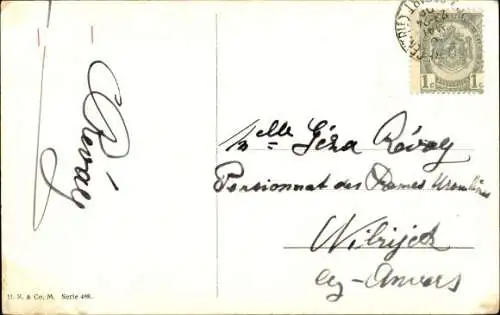 Révay
Mlle Géza Révay
Pensionnat des Dames Ursulines
Wilrijck
lez-Anvers
1c 1c
H. N. & Co., M. Serie 498.